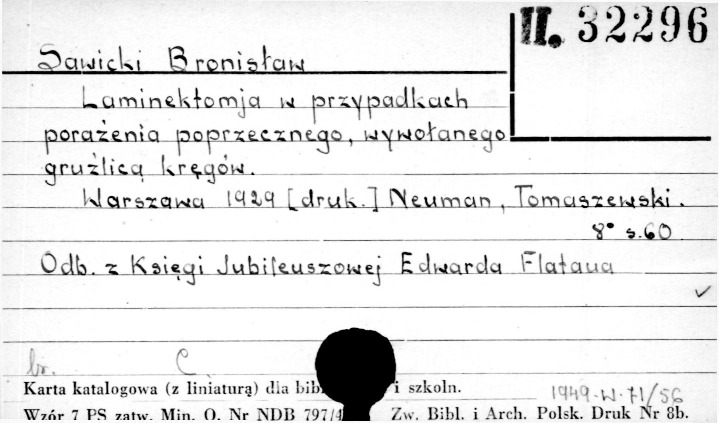 II. 32296
Sawicki Bronisław
Laminektomja w przypadkach
porażenia poprzecznego, wywołanego
gruźlicą kręgów.
Warszawa 1929 [druk.] Neuman, Tomaszewski.
8° s.60
Odb. z Księgi Jubileuszowej Edwarda Flataua
br. C
Karta katalogowa (z liniaturą) dla i szkoln.
1949.W.71/56
Wzór 7 PS zatw. Min. O. Nr NDB 797/4 Zw. Bibl. i Arch. Polsk. Druk Nr 8b.